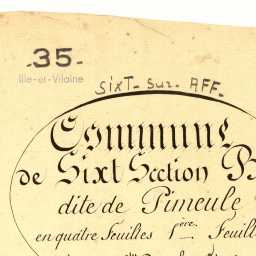 - 35 -
Ille-et-Vilaine
SIXT-SUR-AFF-
Commune
de Sixt Section B
dite de Pimeule
en quatre feuilles 1ère. Feuill